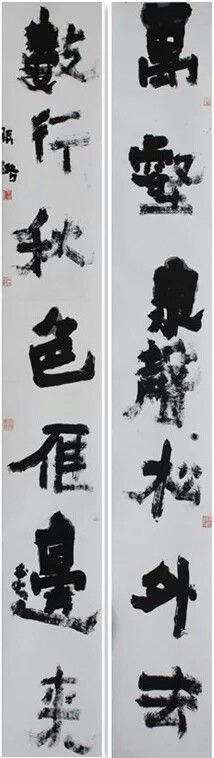 萬壑泉聲松外去
數行秋色雁邊來